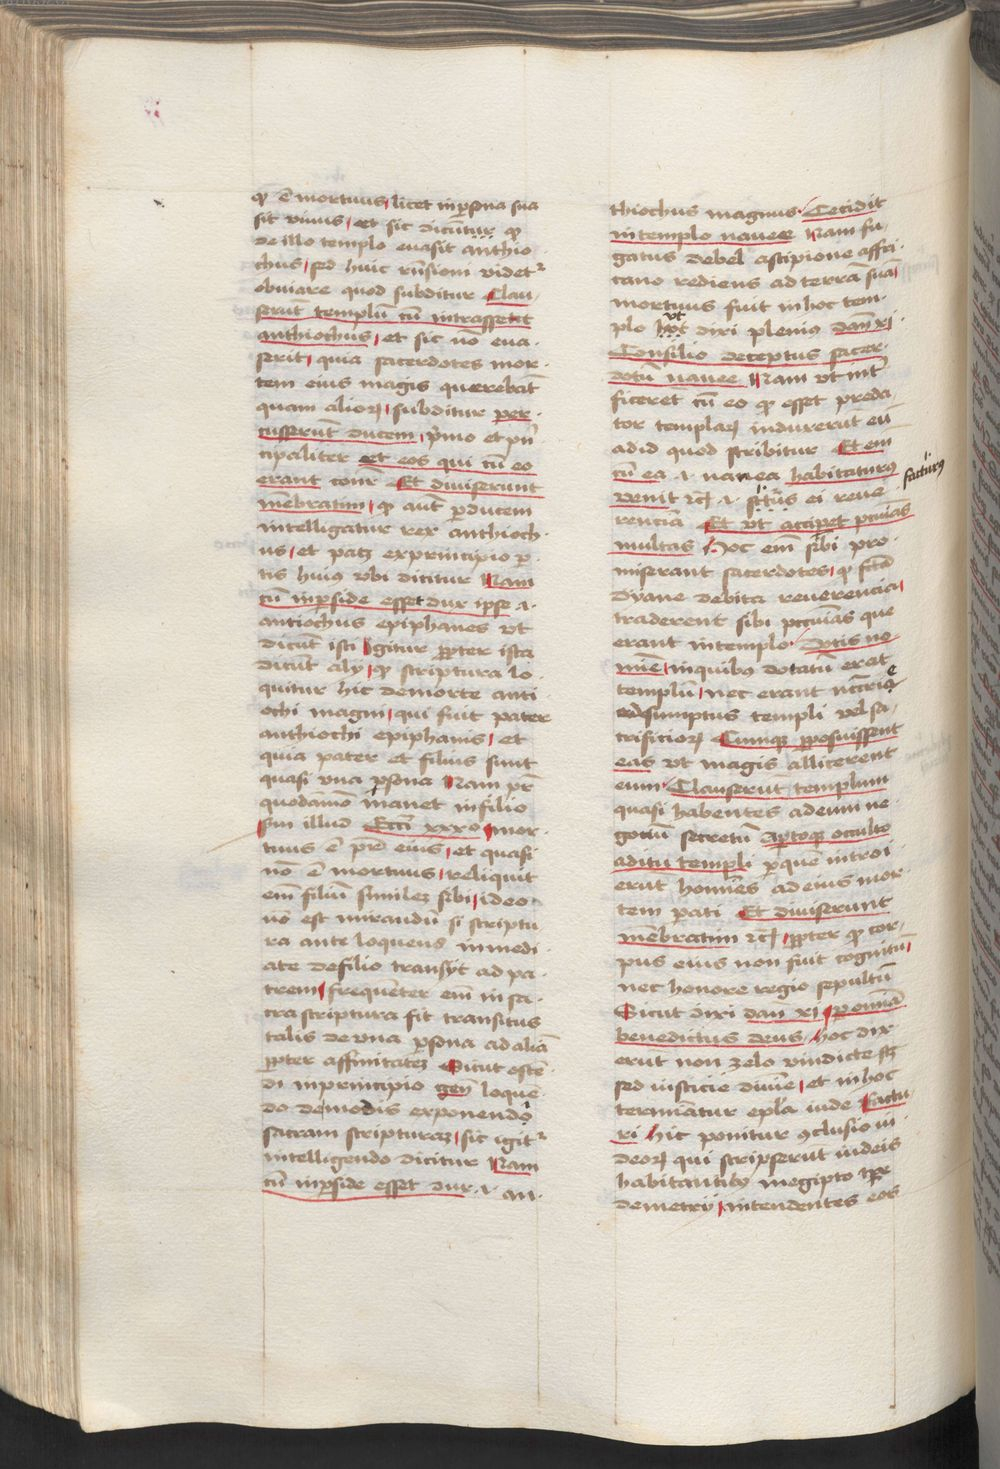 qꝫ ē mortuus licet in ꝑsona sua
sit viuus et sic dicūtur qꝫ
de illo templo euasit anthio
chus sed huic rn̄siom videtᷣ
obuiare quod subditur Clau
serūt templū cū intrassett
anthiochus et sic nō eua
serit quia sacerdotes mor
tem eius magis querebāt
quam alioꝝ subditur per
cusserūt ducem pͥmo et pn̄
cipaliter et eos qui cū eo
erant cōnr̄ Et diuiserunt
mēbratim qꝫ aūt ꝑ ducem
intelligatur rex anthioch
us et patꝫ ex principio ꝑ
tis huiꝰ vbi dicitur Nam
cū in ꝑside esset dux ipse .i.
antiochus epiphanes vt
dicūt isti Igitur ꝓpter ista
dicūt alij qꝫ scriptura lo
quitur hic de morte anti
ochi magni qui fuit pater
anthiochi epiphanis et
quia pater et filius sunt
quasi vna ꝑsona Nam pr̄
quodāmō manet in filio
sm illud Eccī xxxo mor
tuus ē pr̄ eius et quasi
nō ē mortuus reliquit
em̄ filiū similez sibi ideo
nō est mirandū si scriptu
ra ante loquens inmedi
ate de filio transijt ad pa
trem frequēter em̄ in sa
cra scriptura fit transitus
talis de vna ꝑsona ad aliā
ꝓpter affinitatēꝫ Sicut ostē
di in principio gen̄ loquē
do de modis exponendo
sacram scripturaꝫ sic igitᷣ
intelligendo dicitur Nam
cū in ꝑside esset dux .i. an
thiochus magnus Cecidit
in templo nauee Nam fu
gatus debel a scipione affri
cano rediens ad terrā suā
mortuus fuit in hoc tem
plo vt dixi pleniꝰ dan̄ xi
Consilio deceptus sacer
dotū nauee Nam vt int̄
ficeret cū eo qꝫ esset preda
tor templaꝝ induxerūt eū
ad id quod scribitur Et em̄
cū ea .i. nanea habitaturꝰ
venit rc̄ .i. ei reue
facturꝰ
renciā Et vt acciperet pcūias
multas Hoc em̄ sibi pro
miserant sacerdotes qꝫ fc̄ta
dyane debita reuerencia
traderent sibi pecūias que
erant in templo Dotis no
mīe in quibꝰ dotatū erat
templū nec erant nc̄crie
ad sumptus templi vel sa
crificioꝝ Cumqꝫ ꝓposuissent
eas vt magis allicerent
eum Clauserūt templum
quasi habentes ad eum ne
gotiū secretū Aꝑtoqꝫ occulto
aditu templi ꝑ quē introi
erūt homīes ad eius mor
tem pati Et diuiserunt
mēbratim rc̄ ꝓpter qꝫ cor
pus eius non fuit cognitū
nec honore regio sepultū
Sicut dixi dan̄ xi ꝑ omnia
benedictus deus hoc dix
erūt non zelo vindicte sꝫ
sed iusticie diuīe et in hoc
terminatur epl̄a inde Factu
ri hic ponitur ꝯclusio iu
deoꝝ qui scripserūt iudeis
habitantibꝰ in egipto tꝑe
demetrij intendentes eos